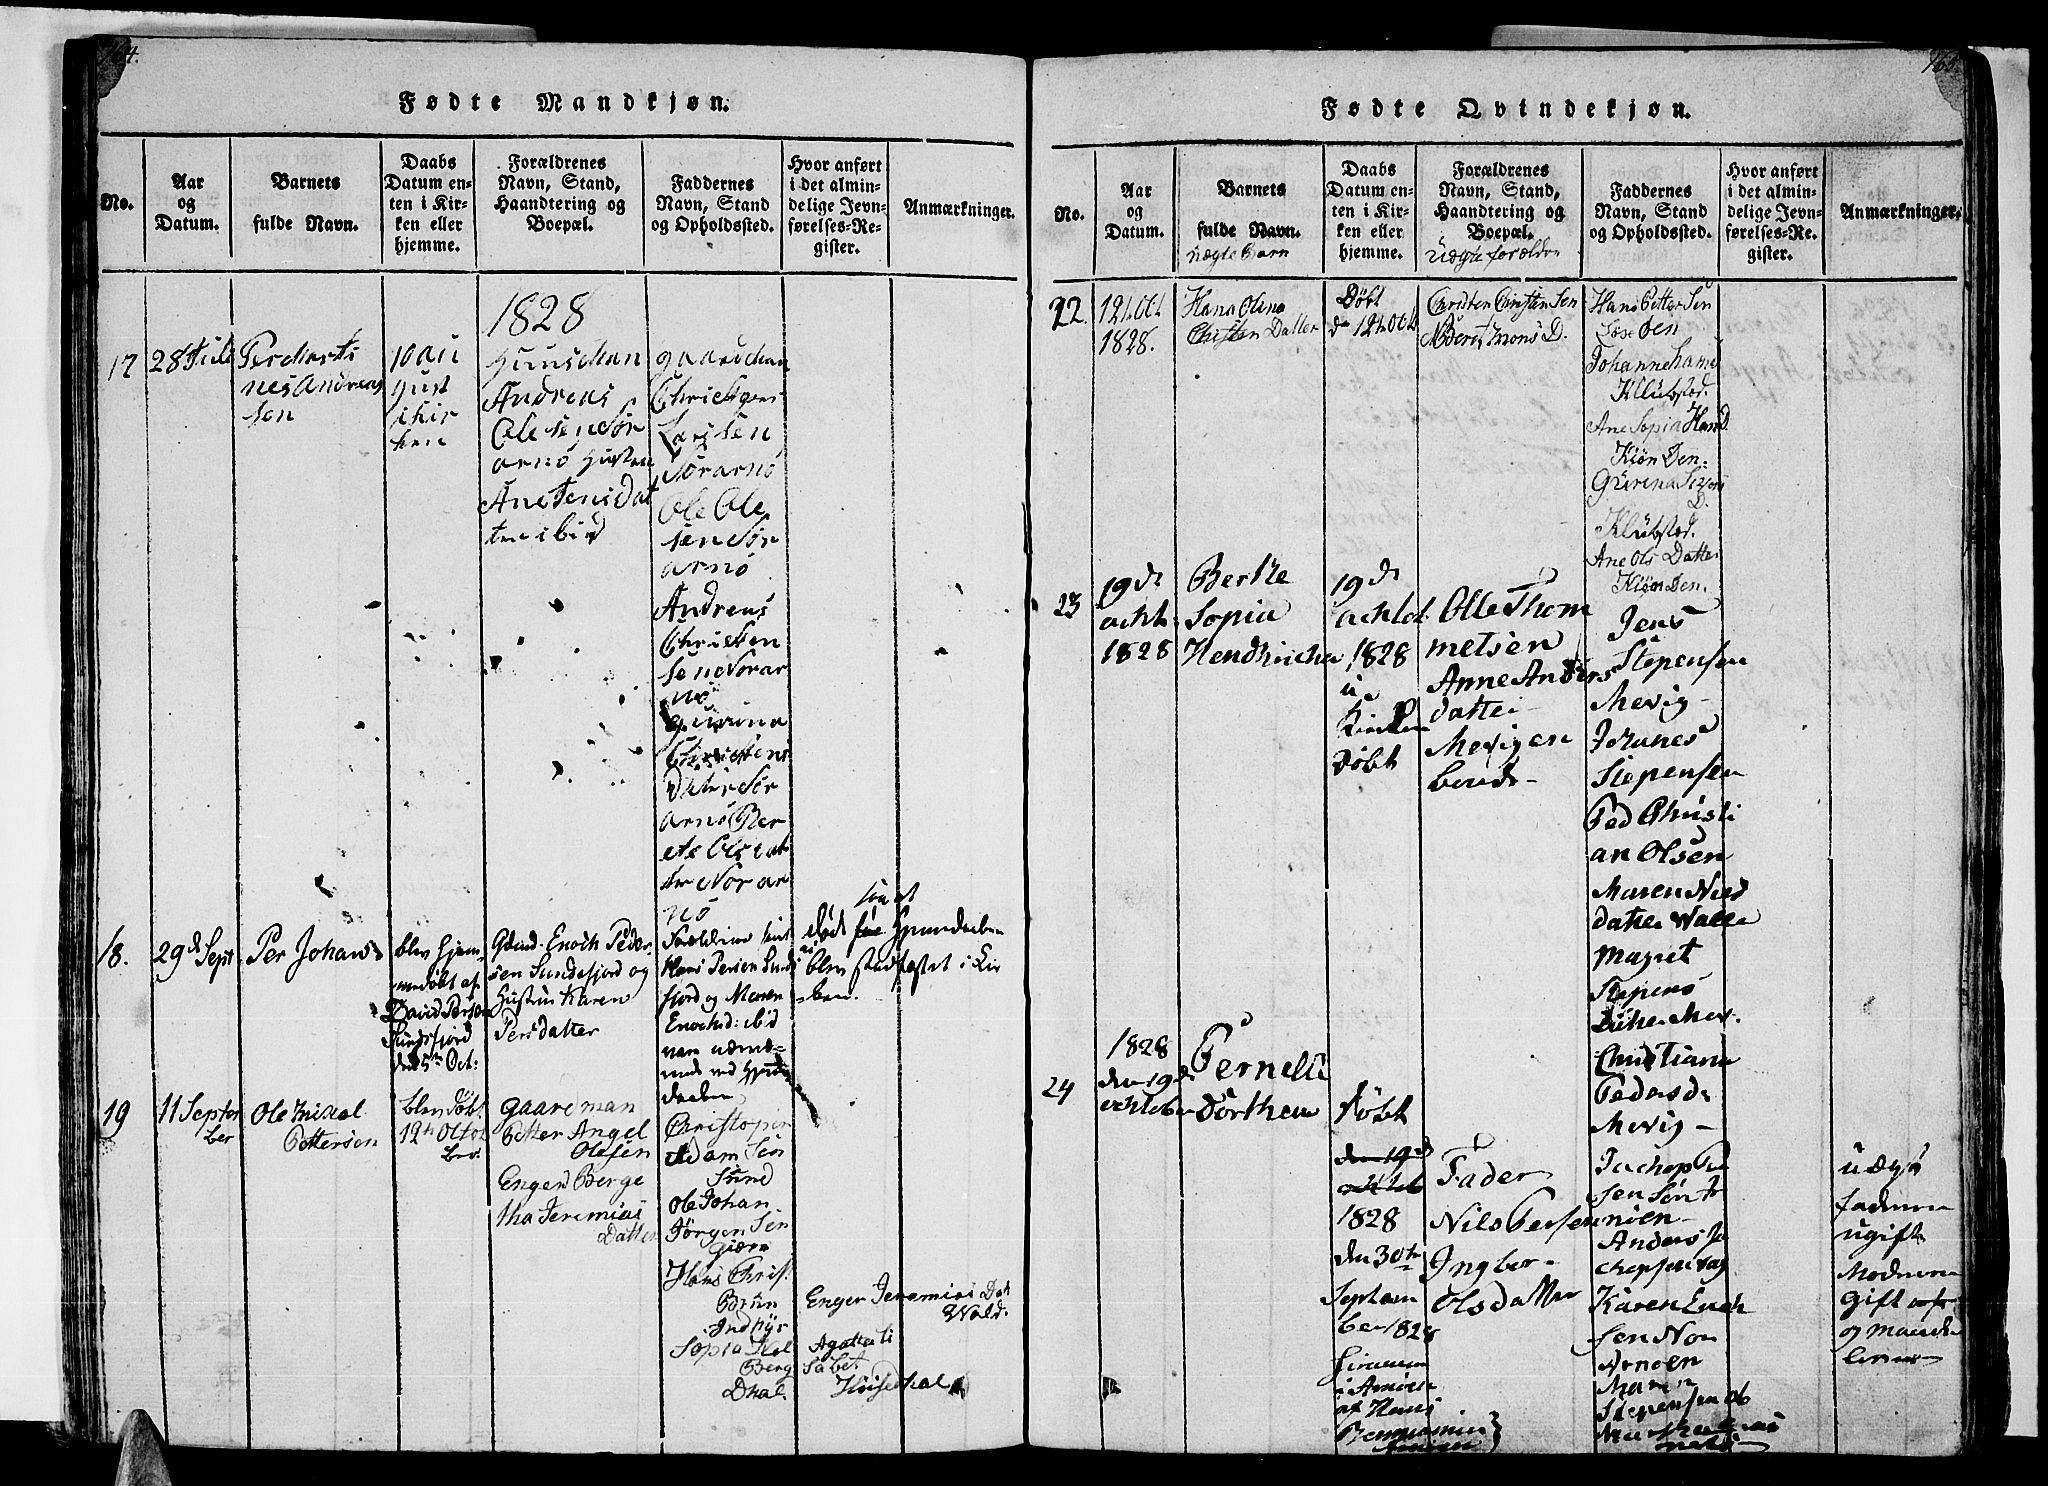 164.
Fødte Mandkjøn.
No.
Aar
og
Datum.
Barnets
fulde Navn.
Daabs
Datum en-
ten i Kir-
ken eller
hjemme.
Forældrenes
Navn, Stand,
Haandtering og
Boepæl.
Faddernes
Navn, Stand
og Opholdssted.
Hvor anført
i det almin-
delige Jevn-
førelses-Re-
gister.
Anmærkninger.
1828
17
28 Juli
Per Marti
nes Andreas
sen
10 au
gust
i kir
ken
Huusman
Andreas
Olesen Sør
arnø Hustru
Ane Jens Dat
ter ibid
gaardman
Larssen
Sørarnø
Ole Ole
sen Sør
arnø
Andreas
Christen
sen Norar
nø
Christens
Datter Sør
arnø Ber
ete Ols dat
ter Norar
nø
18.
29d Sept
Per Johan
blev hjem
medøbt af
David Persen
Sundsfjord
den 5te Oct:
Gdmd. Enoch Peder
sen Sundsfjord og
Hustru Karen
Persdatter
Forældrene samt
Hans Persen Sunds
fjord og Maren
Enochsd: ibid
vare nærvæ-
rende ved Hjemme
daaben
død
blev stadfæstet i Kir
ken.
19
11 Septem
ber
Ole Mikal
Pettersen
blev døbt
12te Octo
ber
gaardman
Petter Angel
Olesen
Enger Berge
tha Jeremias
Datter
Christopher
Adam Sen
Sund
Ole Johan
Jørgen Sen
Giæra
Hans Chris.
Indhyr
Sopia Hol
Berg
Dhal.
Enger Jeremias Dat
Wold.
Agatte Li
sabet
165
Fødte Qvindekjøn.
No.
Aar
og
Datum.
Barnets
fulde Navn.
uægte Barn
Daabs
Datum en-
ten i Kir-
ken eller
hjemme.
Forældrenes
Navn, Stand,
Haandtering og
Boepæl.
Uægte forældre
Faddernes
Navn, Stand
og Opholdssted.
Hvor anført
i det almin-
delige Jevn-
førelses-Re-
gister.
Anmærkninger.
22.
12t. Oct
1828.
Hana Olina
Christen Datter
Døbt
d 12t. Octb
Christen Christen Sen
Berit Mons D.
Hans Petter Sen
Johanne Hans
Klubstad.
Ane Sopia Hans D.
Kiøn Den.
D.
Klubstad.
Ane Ols Datter
Kiøn Den.
23
19 de
octb.
1828
Berthe
Sopia
Hendricha
19 de
octob.
1828
i
Kirken
Døbt
Olle Thom
metsen
Anne Anders
datter
Mevig en
bends-
Jens
Stepensen
Mevig-
Johanes
Stepensen
Ped Christi
an Olsen
Maren Niels
datter Valle
Magret
Stepens
datter Mev.
Christiana
Pedersd.
Mevig-
24
1828
den 19 de
october
Pernelle
Dorthea
døbt
den 19d
octob
1828
den 30te
Septem
ber 1828
hiemme
i Arnøen
af Hans
Benjamin
Fader
Nils Persen
Ingbor-
Olsdatter
Jachop Pe
sen Sør Ar
nøen-
Anders Ja
chopsen Vaag
Karen Enoch
sen Nor
Arnøen
Maren
Stepensen
uægte
faderen
ugift
Moderen
gift
og Manden